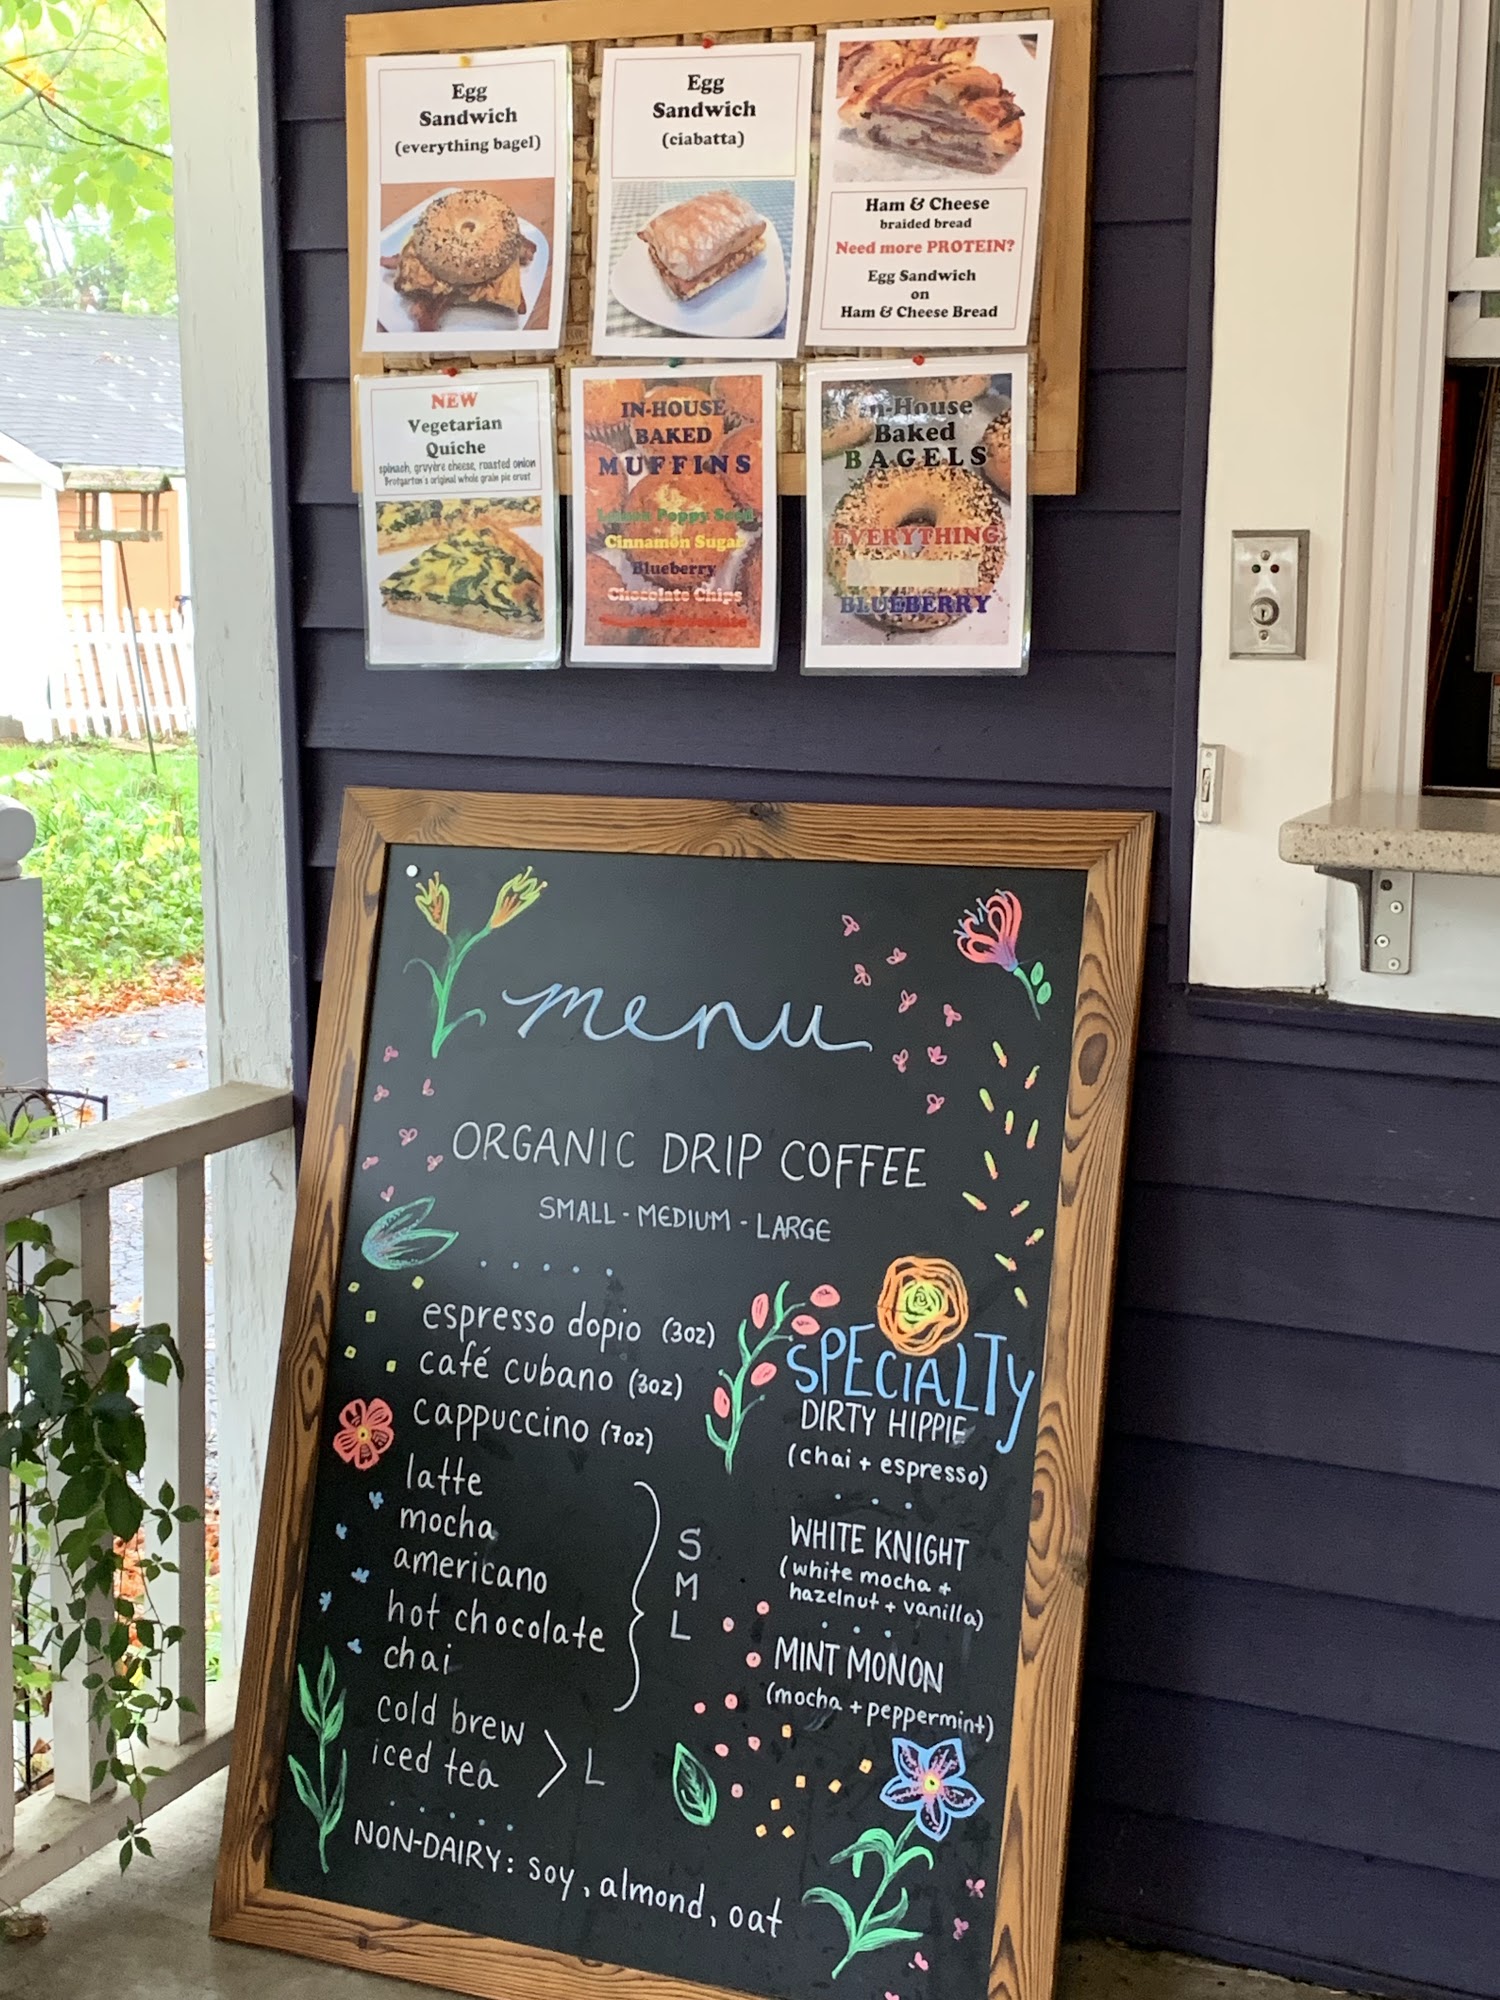 Egg
Sandwich
(everything bagel)
Egg
Sandwich
(ciabatta)
Ham & Cheese
braided bread
Need more PROTEIN?
Egg Sandwich
on
Ham & Cheese Bread
NEW
Vegetarian
Quiche
spinach, gruyère cheese, roasted onion
Brotgarten's original whole grain pie crust
IN-HOUSE
BAKED
MUFFINS
Lemon Poppy Seed
Cinnamon Sugar
Blueberry
Chocolate Chips
In-House
Baked
BAGELS
EVERYTHING
BLUEBERRY
menu
ORGANIC DRIP COFFEE
SMALL - MEDIUM - LARGE
espresso dopio (3oz)
café cubano (3oz)
cappuccino (7oz)
latte
mocha
americano
hot chocolate
chai
S
M
L
cold brew
iced tea
L
NON-DAIRY: soy, almond, oat
SPECIALTY
DIRTY HIPPIE
(chai + espresso)
WHITE KNIGHT
(white mocha +
hazelnut + vanilla)
MINT MONON
(mocha + peppermint)